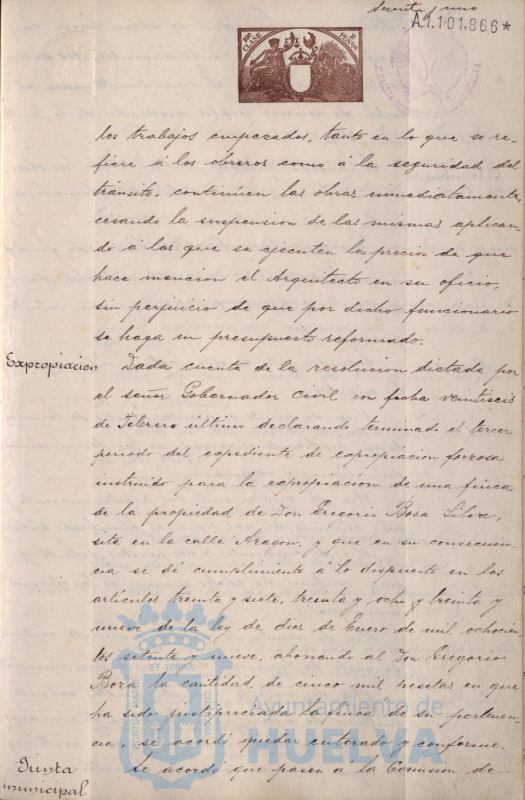 Sesenta y uno
A.1.101,866*
10ª CLASE
2 PESETAS
los trabajos empezados, tanto en lo que se re-
fiere á los obreros como á la seguridad del
tránsito, continúen las obras inmediatamente,
cesando la suspension de las mismas aplican-
do á las que se ejecuten los precios de que
hace mencion el Arquitecto en su oficio,
sin perjuicio de que por dicho funcionario
se haga un presupuesto reformado.
Expropiacion
Dada cuenta de la resolucion dictada por
el señor Gobernador Civil con fecha veintiseis
de Febrero último declarando terminado el tercer
periodo del expediente de expropiacion forzosa
instruido para la expropiacion de una finca
de la propiedad de Don Gregorio Boza Silva,
sita en la calle Aragon, y que en su consecuen-
cia se dé cumplimiento á lo dispuesto en los
artículos treinta y siete, treinta y ocho y treinta y
nueve de la ley de diez de Enero de mil ochocien-
tos setenta y nueve, abonando al Don Gregorio
Boza la cantidad de cinco mil pesetas en que
ha sido justipreciada la finca de su pertenen-
cia, se acordó quedar enterado y conforme.
Junta
municipal
Se acordó que pasen á la Comision de
Ayuntamiento de
HUELVA